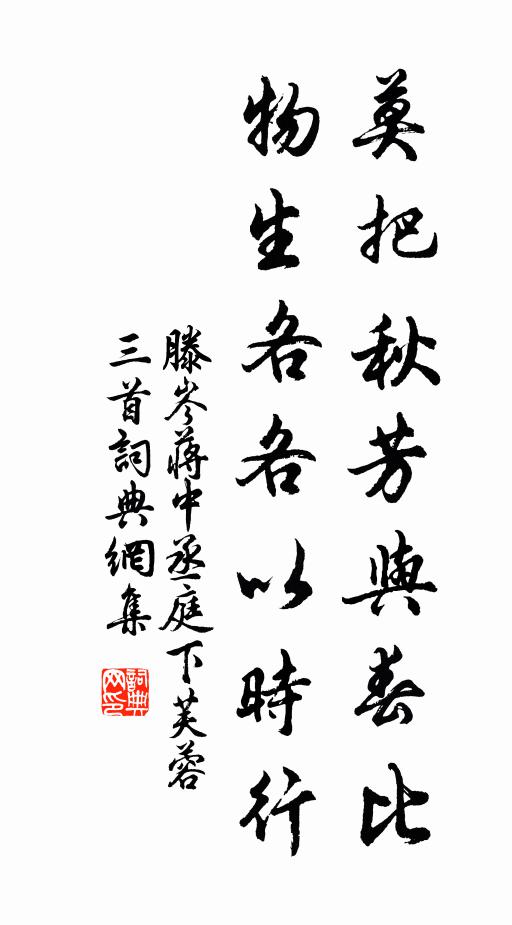 莫把秋芳與春比
物生各各以時行
滕岑蔣中丞庭下芙蓉
三首詞典網集
詞典
网印